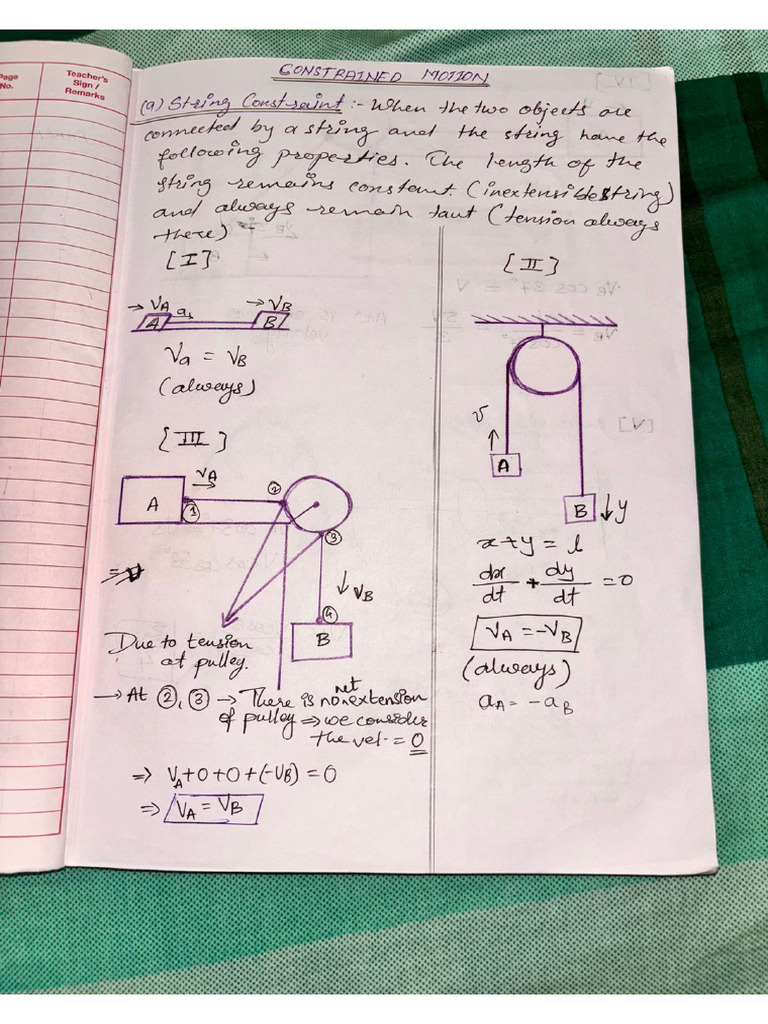 Page No.
Teacher's Sign / Remarks
CONSTRAINED MOTION
(a) String Constraint :- When the two objects are
connected by a string and the string have the
following properties. The length of the
string remains constant. (inextensible string)
and always remain taut (tension always
there)
[I]
→ VA
→ VB
A
B
Va = VB
(always)
[II]
v
A
B
y
x+y = l
dx/dt + dy/dt = 0
VA = -VB
(always)
aA = -aB
[III]
VA
A
①
②
③
VB
④
B
Due to tension
at pulley.
→ At ②, ③ → There is no net extension
of pulley ⇒ we consider
the vel. = 0
⇒ VA+0+0+(-VB) = 0
⇒ VA = VB